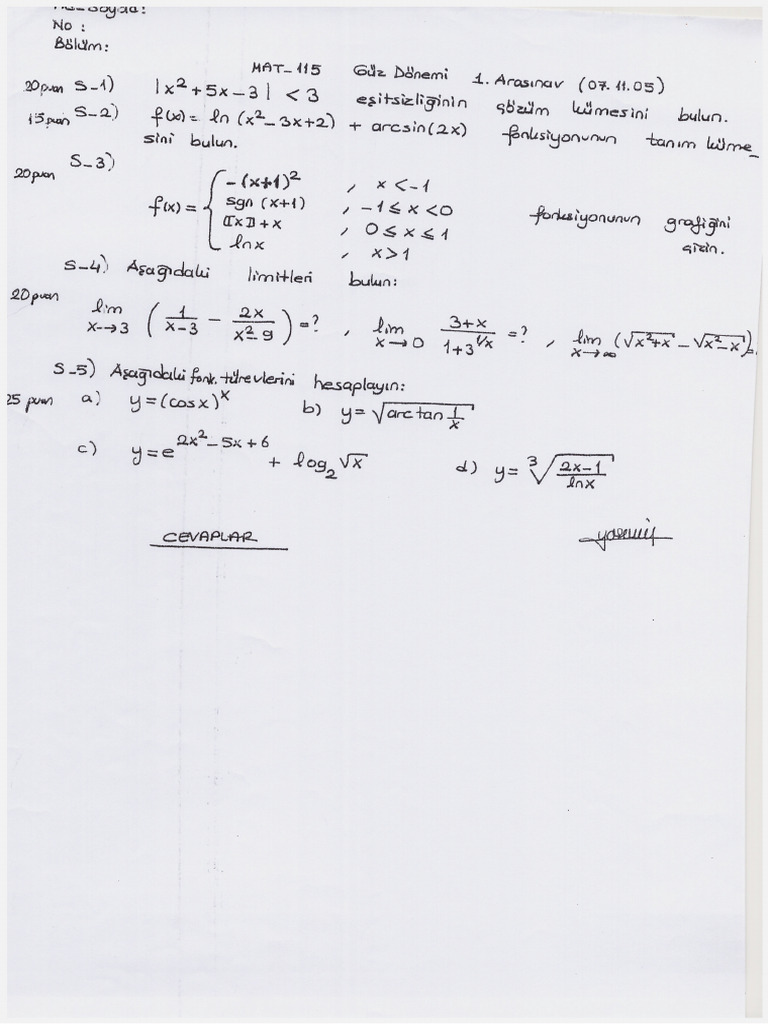 No :
Bölüm:
MAT-115 Güz Dönemi 1. Arasınav (07.11.05)
20puan S-1) |x²+5x-3| < 3 eşitsizliğinin çözüm kümesini bulun.
15puan S-2) f(x) = ln(x²-3x+2) + arcsin(2x) fonksiyonunun tanım küme_
sini bulun.
20puan S-3)
f(x) = { -(x+1)² , x < -1
sgn(x+1) , -1 ≤ x < 0
⟦x⟧+x , 0 ≤ x ≤ 1
lnx , x > 1
fonksiyonunun grafiğini
çizin.
S-4) Aşağıdaki limitleri bulun:
20puan lim x→3 (1/(x-3) - 2x/(x²-9)) = ? , lim x→0 (3+x)/(1+3^(1/x)) = ? , lim x→∞ (√(x²+x) - √(x²-x)) =
S-5) Aşağıdaki fonk. türevlerini hesaplayın:
25 puan a) y=(cosx)^x b) y=√(arctan 1/x)
c) y=e^(2x²-5x+6) + log₂√x d) y= ³√((2x-1)/lnx)
CEVAPLAR